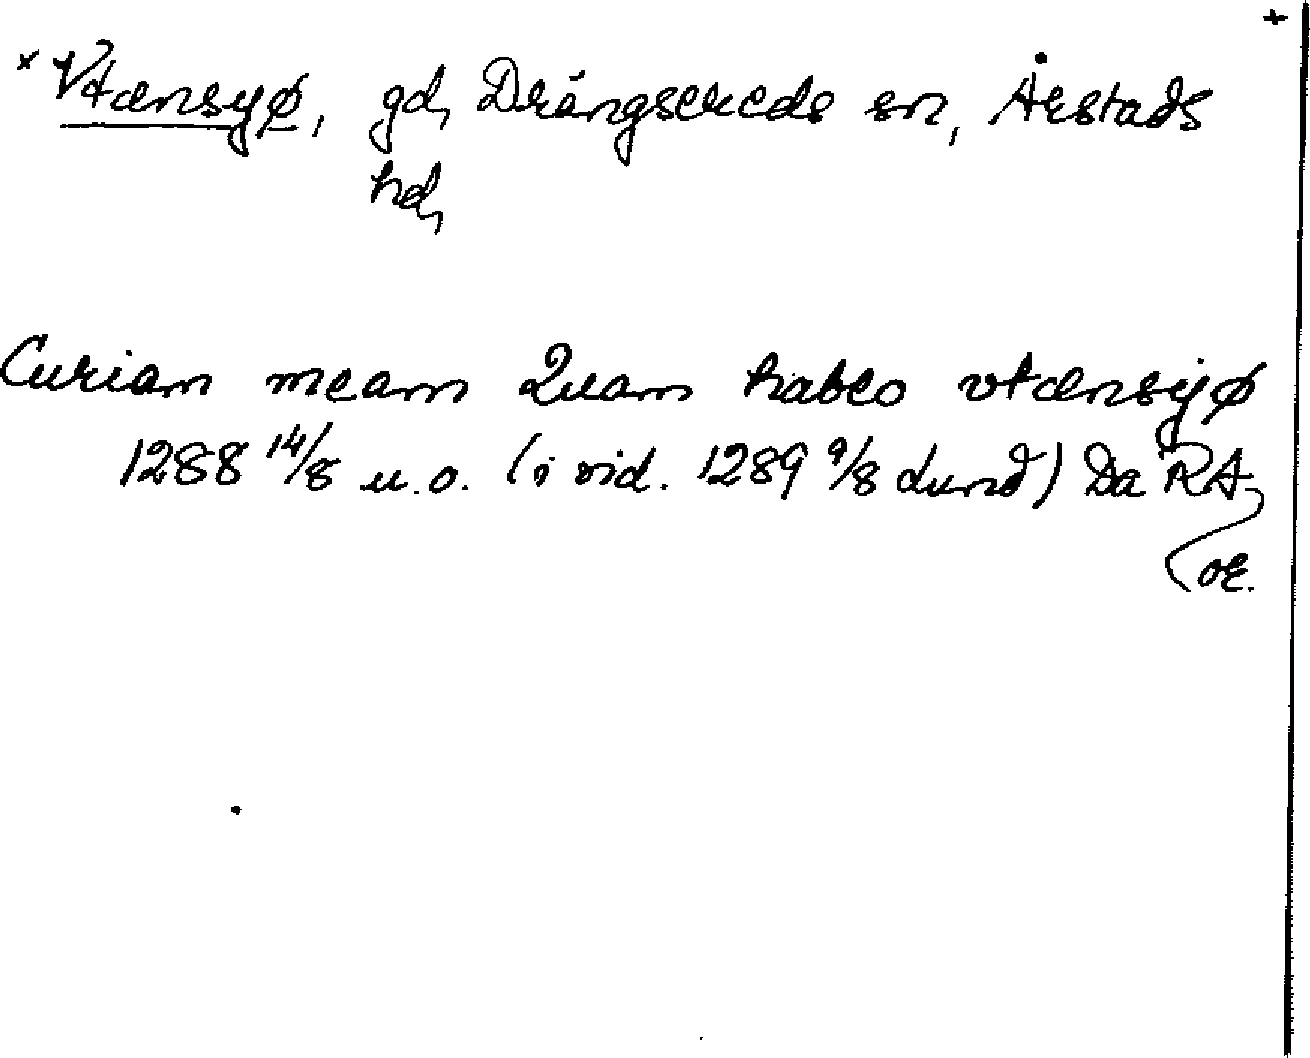 +
× Vtænsyø, gd, Drängsereds sn, Årstads
hd,
Curiam meam Quam habeo vtænsyø
1288 14/8 u.o. (i vid. 1289 9/8 Lund) Da RA,
or.